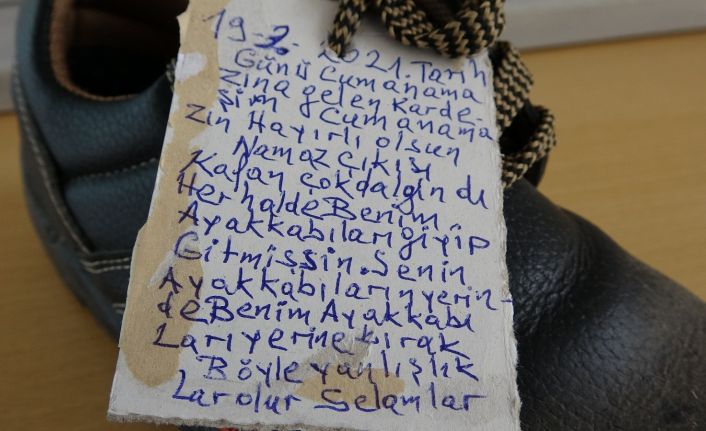 19-2-2021.Tarih
Günü Cumanama
zına gelen Karde-
şim Cumanama
zın Hayırlı olsun
Namaz Çıkışı
Kafan çokdalgın dı
HerhaldeBenim
Ayakkabılarıgiyip
Gitmişsin.Senin
Ayakkabılarınyerin-
deBenimAyakkabı
Larıyerinebırak
Böyleyanlışlık
Larolur Selamlar